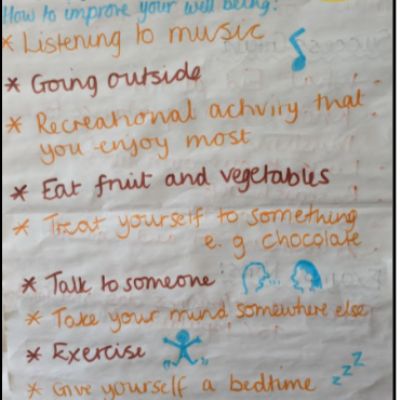 How to improve your well being:
* Listening to music
* Going outside
* Recreational activity that
you enjoy most
* Eat fruit and vegetables
* Treat yourself to something
e.g chocolate
* Talk to someone
* Take your mind somewhere else
* Exercise
* Give yourself a bedtime zzz